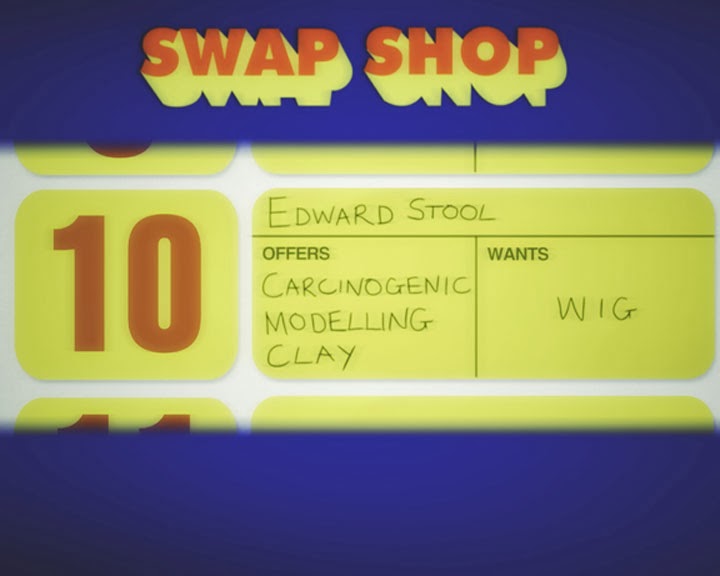 SWAP SHOP
10
EDWARD STOOL
OFFERS
CARCINOGENIC
MODELLING
CLAY
WANTS
WIG
11